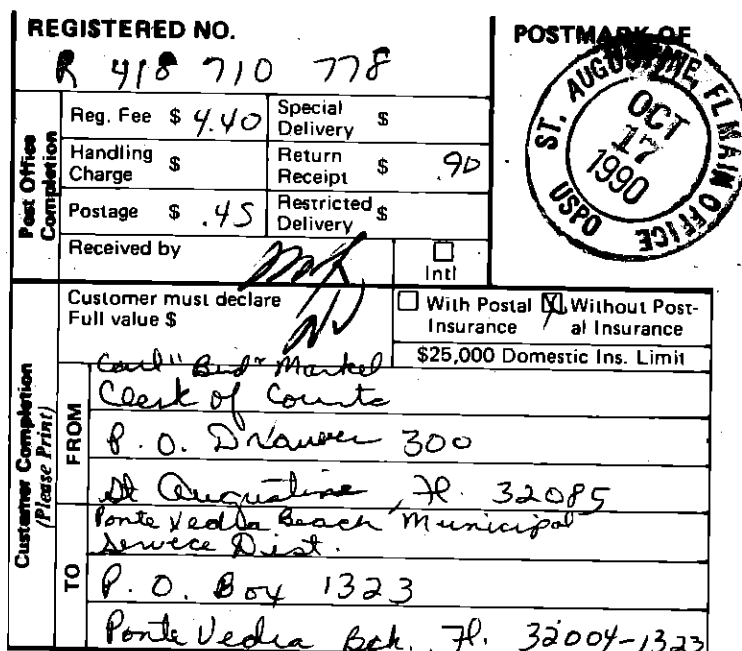 REGISTERED NO.
R 418 710 778
POSTMARK OF
ST. AUGUSTINE, FL MAIN OFFICE
OCT
17
1990
USPO
Post Office Completion
Reg. Fee $ 4.40 Special Delivery $
Handling Charge $ Return Receipt $ .90
Postage $ .45 Restricted Delivery $
Received by
Intl
Customer Completion
(Please Print)
Customer must declare
Full value $ NV
With Postal Insurance
X Without Postal Insurance
$25,000 Domestic Ins. Limit
FROM
Carl "Bud" Markel
Clerk of Courts
P. O. Drawer 300
St Augustine, Fl. 32085
TO
Ponte Vedra Beach Municipal
Service Dist.
P. O. Box 1323
Ponte Vedra Bch. Fl. 32004-1323